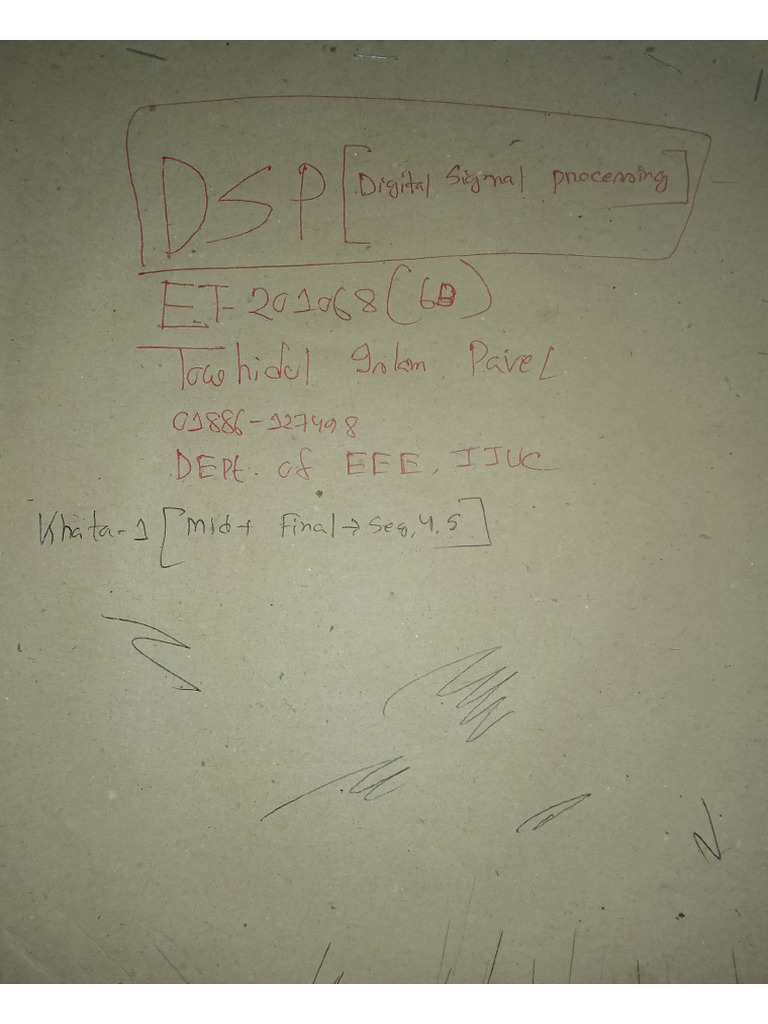 DSP [Digital Signal processing]
ET-201068 (6B)
Towhidul Islam Pavel
01886-127498
DEPt. of EEE, IIUC
Khata-1 [Mid + Final → Seg, 4, 5]